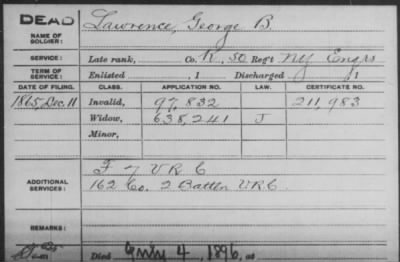 DEAD
Lawrence, George B.
NAME OF SOLDIER:
SERVICE: Late rank, Co. K, 50 Reg't NY Engrs
TERM OF SERVICE: Enlisted , 1 Discharged , 1
DATE OF FILING. CLASS. APPLICATION NO. LAW. CERTIFICATE NO.
1865, Dec. 11 Invalid, 97,832 211,983
Widow, 638,241 J
Minor,
ADDITIONAL SERVICES: F 7 V R C
162 Co. 2 Battln V.R.C.
REMARKS:
Died 4, 1896, at